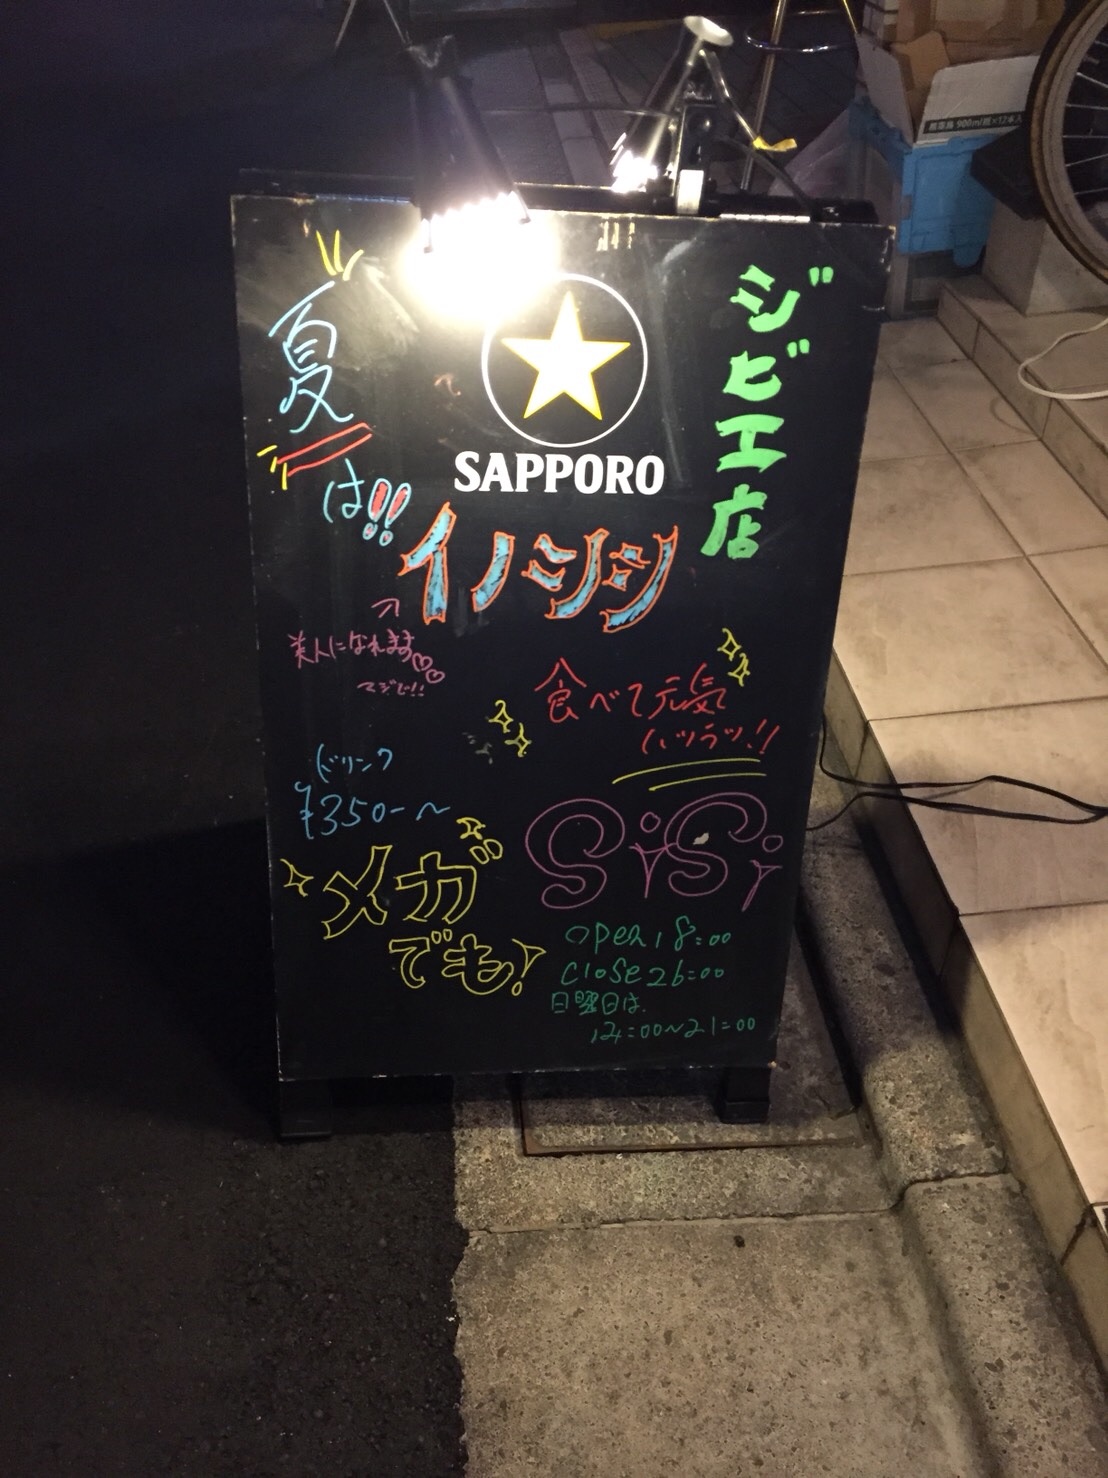 ジビエ店
夏
は!!
SAPPORO
イノシシ
美人になれます♡♡
マジで!!
食べて元気
ハツラツ!!
ドリンク
¥350-～
メガ
でも!
SiSi
open 18:00
close 26:00
日曜日は
14:00～21:00
900ml瓶×12本入